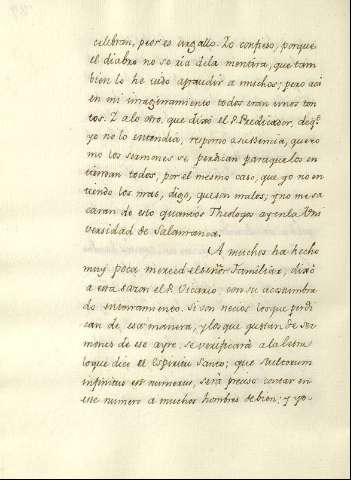 celebran, peor es urgallo. Lo confieso, porque
el diablo no se ria dela mentira, que tam
bien lo he oido aplaudir a muchos; pero acá
en mi imaginamiento todos eran unos ton
tos. Y a lo otro, que dixo el P. Predicador, de q.e
yo no lo entendia, respomo asusbencia, que co
mo los sermones se predican para que los en
tiendan todos, por el mesmo caso, que yo no en
tiendo los mas, digo, que son malos; y no me sa
caran de esto quantos Theologos ay en la Uni
versidad de Salamanca.
A muchos ha hecho
muy poca merced el señor Familiar, dixo
a esta sazon el P. Vicario, con su acostumbra
do entonamiento. Si son necios los que predi
can de esa manera, y los que gustan de ser
mones de ese ayre, se verificará a la letra
lo que dice el Espiritu Santo; que stultorum
infinitus est numerus, será preciso contar en
ese numero a muchos hombres de bien; y yo-